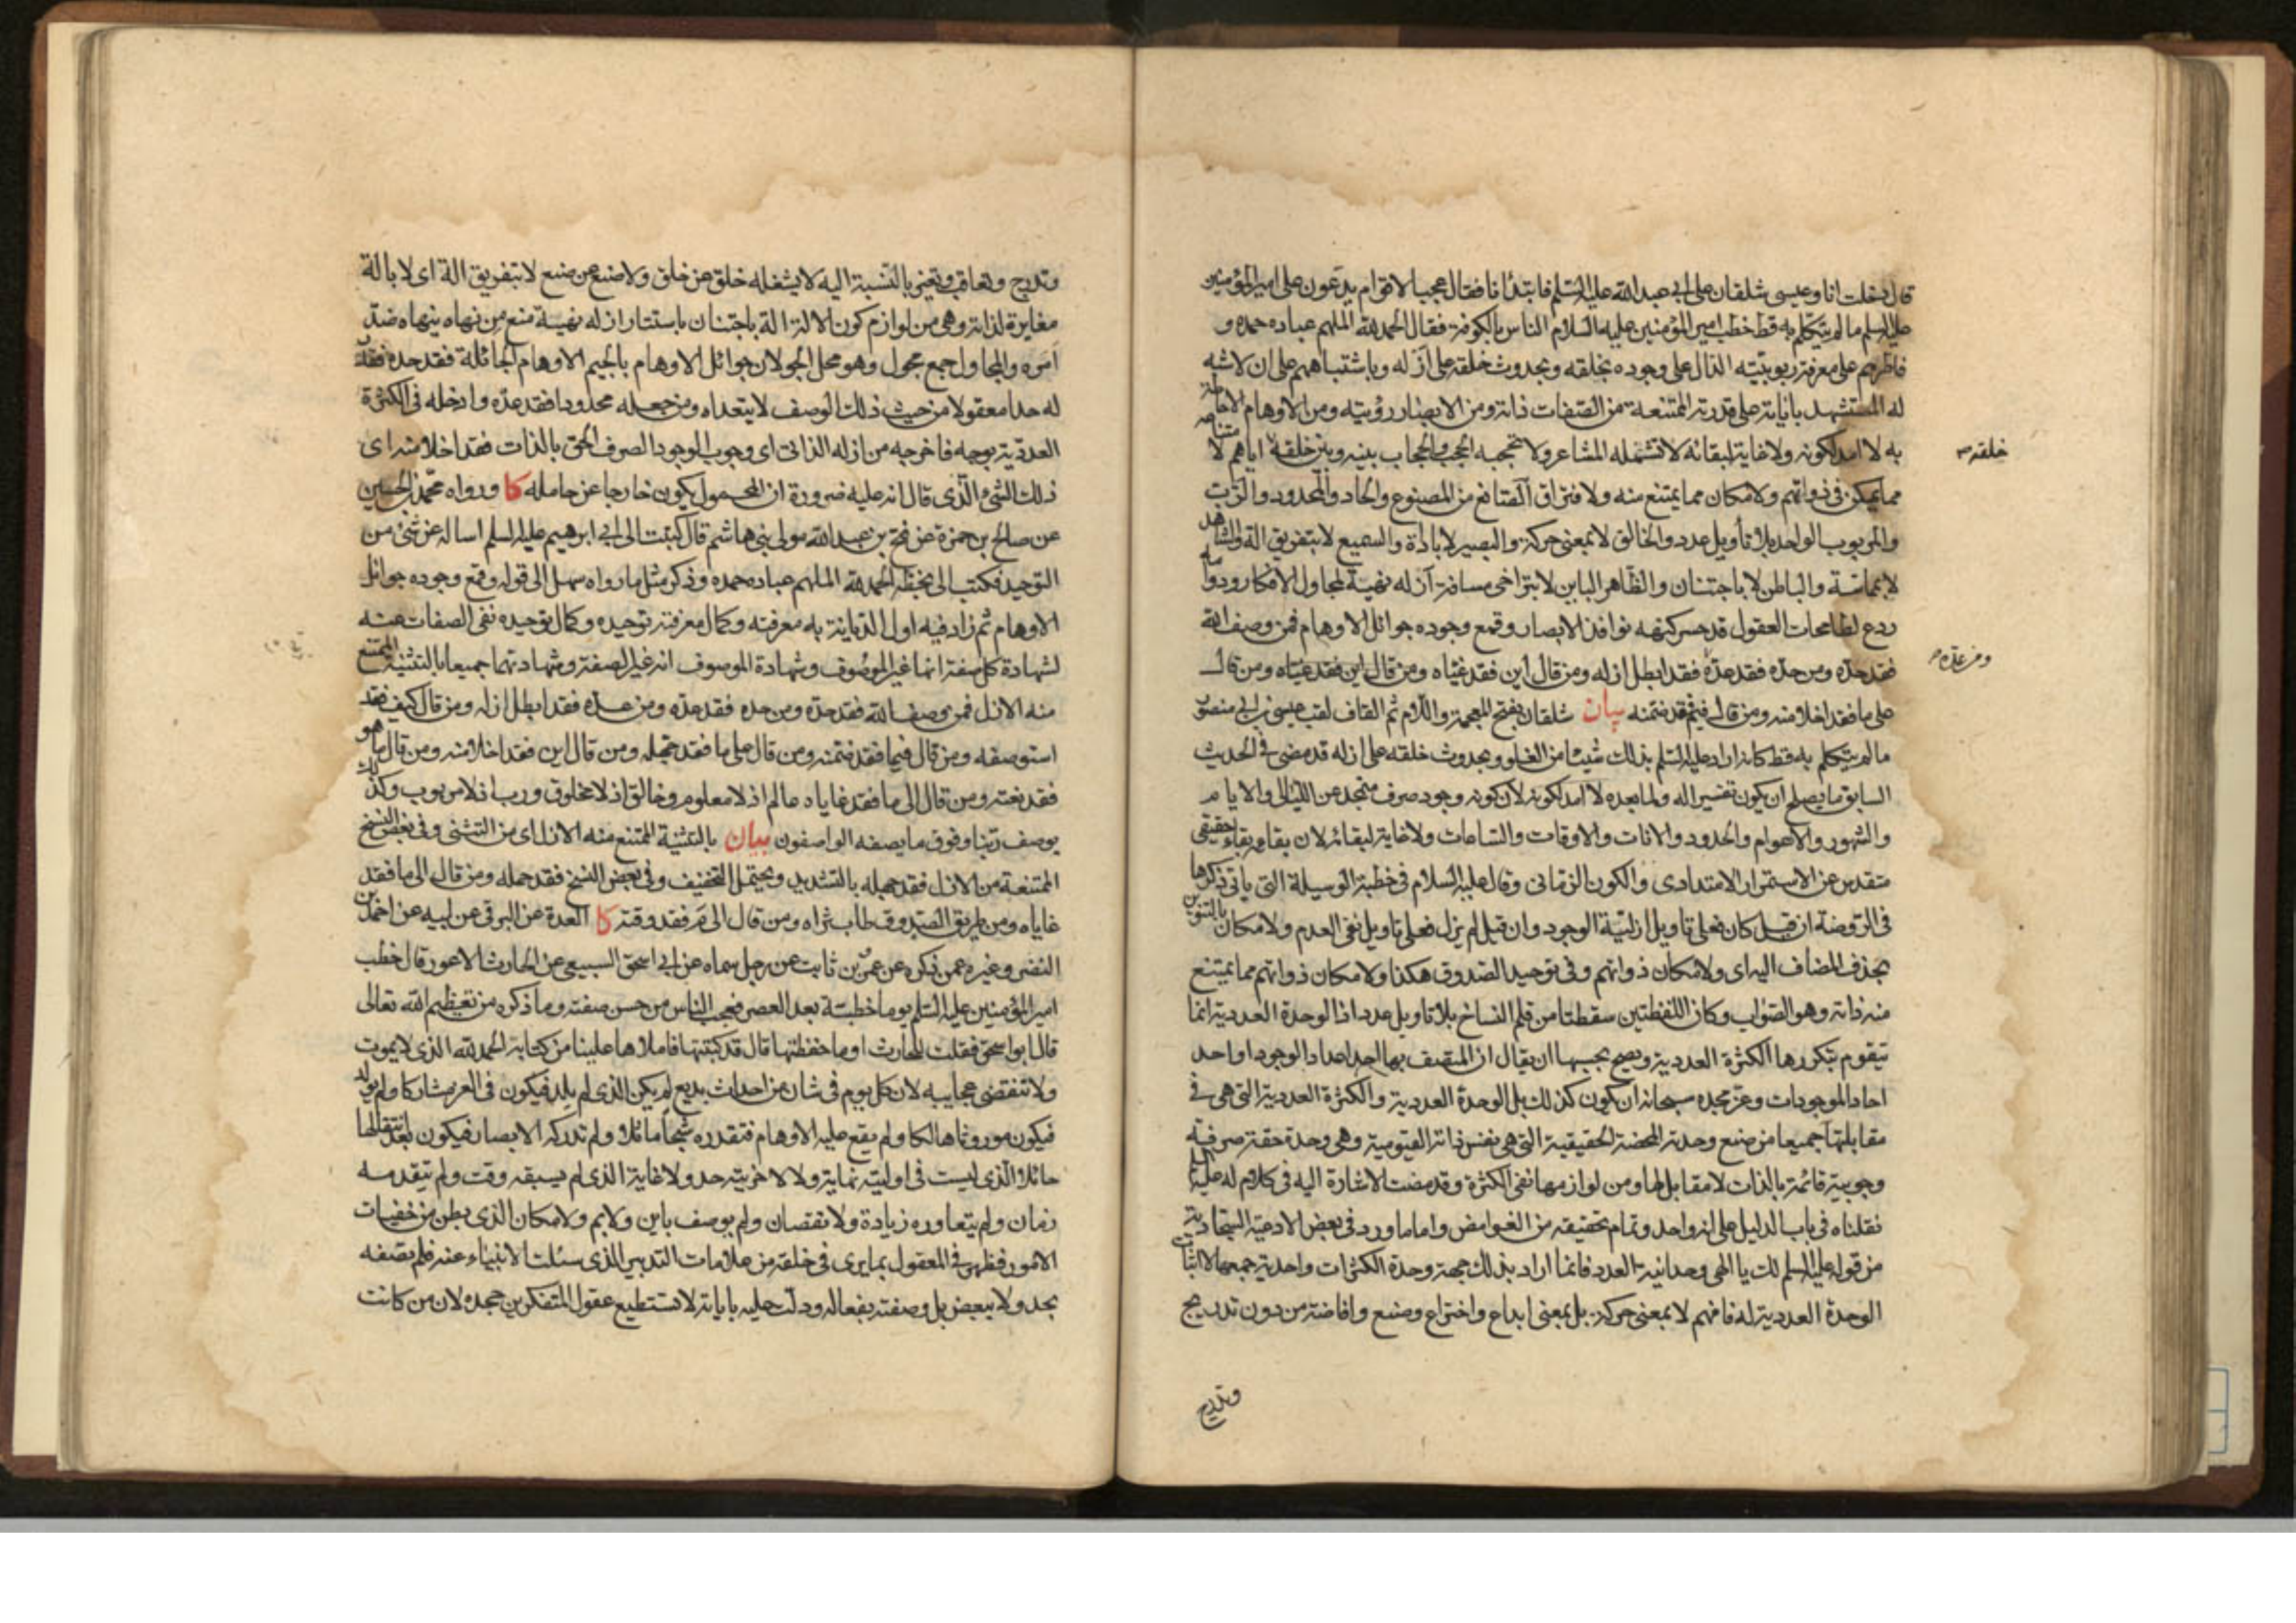 قال دخلت انا وعيسى شلقان على ابي عبد الله عليه السلم فابتدأنا فقال عجبا لاقوام يدعون على امير المؤمنين
عليه السلم ما لم يتكلم به قط خطب امير المؤمنين عليه السلام الناس بالكوفة فقال الحمد لله الملهم عباده حمده و
فاطرهم على معرفة ربوبيته الدال على وجوده بخلقه وبحدوث خلقه على أزله وباشتباههم على ان لا شبه
له المستشهد باياته على قدرته الممتنعة من الصفات ذاته ومن الابصار رؤيته ومن الاوهام الاحاطة
به لا امد لكونه ولا غاية لبقائه لا تشمله المشاعر ولا تحجبه الحجب والحجاب بينه وبين خلقه اياهم لامتناعه
خلقه
مما يمكن في ذواتهم ولامكان مما يمتنع منه ولافتراق الصانع من المصنوع والحاد والمحدود والرب
والمربوب الواحد بلا تأويل عدد والخالق لا بمعنى حركة والبصير لا باداة والسميع لا بتفريق الة والشاهد
لا بمماسة والباطن لا باجتنان والظاهر الباين لا بتراخي مسافة أزله نهية لمجاول الافكار ودوامه
ردع لطامحات العقول قد حسر كنهه نوافذ الابصار وقمع وجوده جوائل الاوهام فمن وصف الله
فقد حده ومن حده فقد عده فقد ابطل ازله ومن قال أين فقد غياه ومن قال
ومن عده
على ما فقد اخلا منه ومن قال فيم فقد ضمنه بيان شلقان بفتح المعجمة واللام ثم القاف لقب عيسى بن ابي منصور
ما لم يتكلم به قط كانه اراد عليه السلم بذلك شيئا من الغلو وبحدوث خلقه على ازله قد مضى في الحديث
السابق ما يصلح ان يكون تفسيرا له ولما بعده لا أمد لكونه لان كونه وجود صرف متجد عن الليالي والايام
والشهور والاعوام والحدود والانات والاوقات والساعات ولا غاية لبقائه لان بقاءه بقاء حقيقي
متقدس عن الاستمرار الامتدادي والكون الزماني وقال عليه السلام في خطبة الوسيلة التي يأتي ذكرها
في الروضة ان قيل كان فعلى تاويل ازلية الوجود وان قيل لم يزل فعلى تاويل نفي العدم ولامكان بالتنوين
بحذف المضاف اليه اي ولامكان ذواتهم وفي توحيد الصدوق هكذا ولامكان ذواتهم مما يمتنع
منه ذاته وهو الصواب وكان اللفظتين سقطتا من قلم النساخ بلا تاويل عدد اذ الوحدة العددية انما
تيقوم بتكررها الكثرة العددية ويصح بحسبها ان يقال ان المتصف بها احد اعداد الوجود او احد
احاد الموجودات وعز مجده سبحانه ان يكون كذلك بل الوحدة العددية والكثرة العددية التي هي في
مقابلتها جميعا من صنع وحدته المحضة الحقيقية التي هي نفس ذاته القيومية وهي وحدة حقة صرفة
وجوبية قائمة بالذات لا مقابل لها ومن لوازمها نفي الكثرة وقد مضت الاشارة اليه في كلام له عليه السلم
نقلناه في باب الدليل على انه واحد وتمام تحقيقه من الغوامض واما ما ورد في بعض الادعية السجادية
من قوله عليه السلم لك يا الهي وحدانية العدد فانما اراد بذلك جهة وحدة الكثرات واحدية جمعها لا اثبات
الوحدة العددية له فافهم لا بمعنى حركة بل بمعنى ابداع واختراع وصنع وافاضة من دون تدريج
وتدريج
وتدريج وتعاقب وتغير بالنسبة اليه لا يشغله خلق عن خلق ولا صنع عن صنع لا بتفريق الة اي لا بالة
مغايرة لذاته وهي من لوازم كون الالة الة باجتنان باستتار ازله نهية منع من نهاه ينهاه ضد
أمره والمجاول جمع مجول وهو محل الجولان جوائل الاوهام بالجيم الاوهام الجائلة فقد حده فقد
له حدا معقولا من حيث ذلك الوصف لا يتعداه ومن جعله محدودا فقد عده وادخله في الكثرة
العددية بوجه فاخرجه من ازله الذاتي اي وجوب الوجود الصرف الحق بالذات فقد اخلا منه اي
ذلك الشيء الذي قال انه عليه ضرورة ان المحمول يكون خارجا عن حامله كا ورواه محمد بن الحسين
عن صالح بن حمزة عن فتح بن عبد الله مولى بني هاشم قال كتبت الى ابي ابرهيم عليه السلم اساله عن شيء من
التوحيد فكتب الى بخطه الحمد لله الملهم عباده حمده وذكر مثل ما رواه سهل الى قوله وقمع وجوده جوائل
الاوهام ثم زاد فيه اول الديانة به معرفته وكمال معرفته توحيده وكمال توحيده نفي الصفات عنه
لشهادة كل صفة انها غير الموصوف وشهادة الموصوف انه غير الصفة وشهادتهما جميعا بالتثنية الممتنع
منه الازل فمن وصف الله فقد حده ومن حده فقد عده ومن عده فقد ابطل ازله ومن قال كيف فقد
استوصفه ومن قال فيما فقد ضمنه ومن قال على ما فقد حمله ومن قال اين فقد اخلا منه ومن قال ما هو
فقد نعته ومن قال الى ما فقد غاياه عالم اذ لا معلوم وخالق اذ لا مخلوق ورب اذ لا مربوب وكذلك
يوصف ربنا وفوق ما يصفه الواصفون بيان بالتثنية الممتنع منه الازل اي من التثني وفي بعض النسخ
الممتنعة من الازل فقد جهله بالتشديد ويحتمل التخفيف وفي بعض النسخ فقد حمله ومن قال الى ما فقد
غاياه ومن طريق الصدوق طاب ثراه ومن قال الى م فقد وقته كا العدة عن البرقي عن ابيه عن احمد بن
النضر وغيره عمن ذكره عن عمرو بن ثابت عن رجل سماه عن ابي اسحق السبيعي عن الحارث الاعور قال خطب
امير المؤمنين عليه السلم يوما خطبة بعد العصر فعجب الناس من حسن صفته وما ذكره من تعظيم الله تعالى
قال ابو اسحق فقلت للحارث اوما حفظتها قال قد كتبتها فاملاها علينا من كتابه الحمد لله الذي لا يموت
ولا تنقضي عجايبه لان كل يوم في شان من احداث بديع لم يكن الذي لم يلد فيكون في العز مشاركا ولم يولد
فيكون موروثا هالكا ولم يقع عليه الاوهام فتقدره شبحا ماثلا ولم تدركه الابصار فيكون بعد انتقالها
حائلا الذي ليست في اوليته نهاية ولا لاخريته حد ولا غاية الذي لم يسبقه وقت ولم يتقدمه
زمان ولم يتعاوره زيادة ولا نقصان ولم يوصف باين ولا بم ولامكان الذي بطن من خفيات
الامور وظهر في العقول بما يرى في خلقه من علامات التدبير الذي سئلت الانبياء عنه فلم تصفه
بحد ولا ببعض بل وصفته بفعاله ودلت عليه باياته لا تستطيع عقول المتفكرين جحده لان من كانت